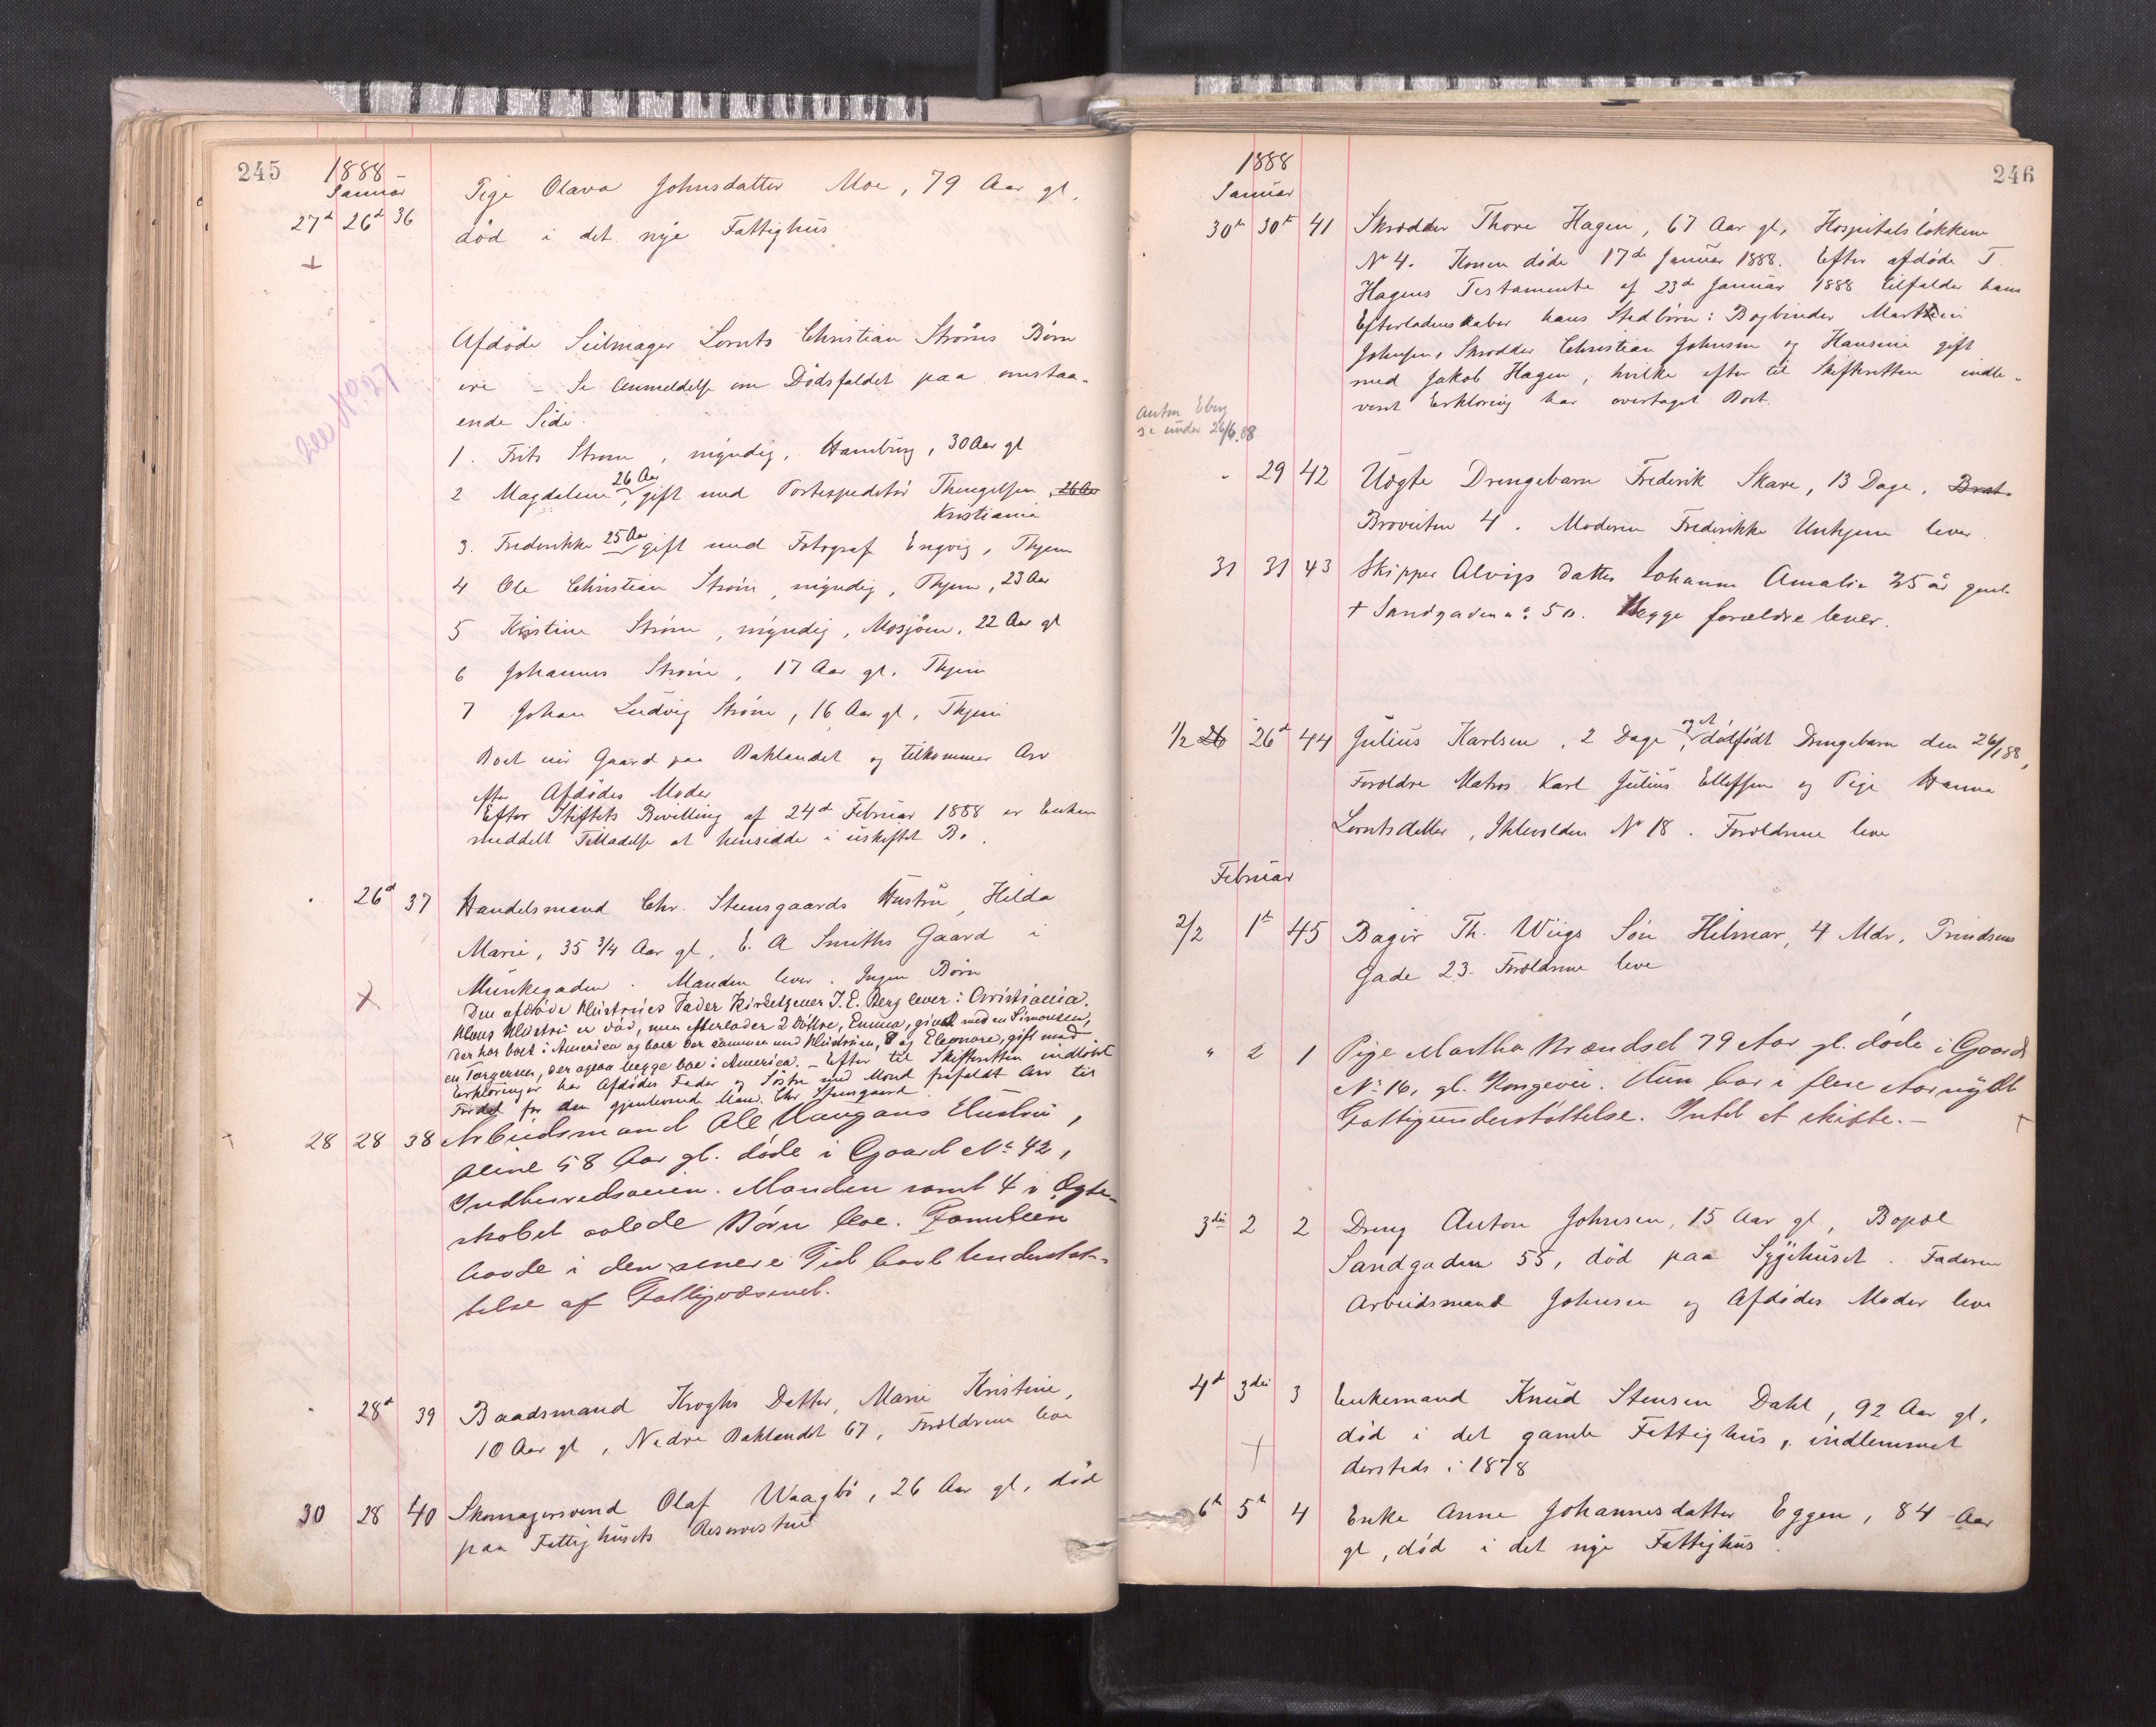 245
1888
Januar
27d 26d 36 Pige Olava Johnsdatter Moe, 79 Aar gl,
død i det nye Fattighus
Afdøde Seilmager Lornts Christian Strøms Børn
ere – Se Anmeldelse om Dødsfaldet paa omstaa-
ende Side.
No 27
1. Frits Strøm, myndig, Hamburg, 30 Aar gl
26 Aar
2 Magdalene, gift med Postexpeditør Thengelsen, 26 Aar
Kristiania
3. Frederikke 25 Aar gift med Fotograf Engvig, Thjem
4 Ole Christian Strøm, myndig, Thjem, 23 Aar
5 Kristine Strøm, myndig, Mosjøen, 22 Aar gl
6 Johannes Strøm, 17 Aar gl. Thjem
7 Johan Ludvig Strøm, 16 Aar gl, Thjem
Boet eier Gaard paa Baklandet og tilkommer Arv
efter Afdødes Moder
Efter Stiftets Bevilling af 24d Februar 1888 er Enken
meddelt Tilladelse at hensidde i uskiftet Bo.
26d 37 Handelsmand Chr. Steensgaards Hustru, Hilda
Marie, 35 3/4 Aar gl, E. A Smiths Gaard i
Munkegaden. Manden lever. Ingen Børn
Den afdøde Hustrues Fader Kirketjener J. E. Berg lever i Christiania.
Hans Hustru er død, men efterlader 2 Døttre, Emma, givt med en Simonsen,
der har boet i America og boer der sammen med Hustruen, & og Eleonore, gift med
en Torgersen, der ogsaa begge boe i America. – Efter til Skifteretten indløbet
Erklæringer har Afdødes Fader og Søstre med Mænd frafaldt Arv til
Fordel for den gjenlevende Mand Chr Steensgaard.
28 28 38 Arbeidsmand Ole Haugans Hustru,
Oline 58 Aar gl. døde i Gaard No 42,
Indherredsveien. Manden samt 4 i Ægte-
skabet avlede Børn leve. Familien
havde i den senere Tid havt Understøt-
telse af Fattigvæsenet.
28d 39 Baadsmand Kroghs Datter, Marie Kristine,
10 Aar gl, Nedre Baklandet 67, Forældrene leve
30 28 40 Skomagersvend Olaf Waagbø, 26 Aar gl, død
paa Fattighusets Reservestue
246
1888
Januar
30te 30te 41 Skrædder Thore Hagen, 67 Aar gl, Hospitalsløkken
No 4. Konen døde 17de Januar 1888. Efter afdøde T.
Hagens Testamente af 23de Januar 1888 tilfalder hans
Efterladenskaber hans Stedbørn: Bogbinder Marthin
Johnsen, Skrædder Christian Johnsen og Hansine gift
med Jakob Hagen, hvilke efter til Skifteretten indle-
veret Erklæring har overtaget Boet.
Anton Eberg
se under 26/6.88
29 42 Uægte Drengebarn Frederik Skare, 13 Dage, Brat-
Broveiten 4. Moderen Frederikke Unhjem lever.
31 31 43 Skipper Alvigs datter Johanne Amalie 35 år gml.
+ Sandgaden no 50. Begge forældre lever.
1/2 26 26d 44 Julius Karlsen, 2 Dage, og et dødfødt Drengebarn den 26/1 88,
Forældre Matros Karl Julius Ellefsen og Pige Hanna
Lorntsdatter, Ihlevolden No 18. Forældrene leve
Februar
2/2 1te 45 Bager Th. Wiigs Søn Hilmar, 4 Mdr, Prindsens
Gade 23. Forældrene leve
" 2 1 Pige Martha Brændsel 79 Aar gl. døde i Gaard
No 16, gl. Kongevei. Hun har i flere Aar nydt
Fattigunderstøttelse. Intet at skifte. –
3die 2 2 Dreng Anton Johnsen, 15 Aar gl, Bopæl
Sandgaden 55, død paa Sygehuset. Faderen
Arbeidsmand Johnsen og Afdødes Moder leve
4d 3die 3 Enkemand Knud Stensen Dahl, 92 Aar gl,
død i det gamle Fattighus, indlemmet
dersteds i 1878
6te 5te 4 Enke Anne Johannesdatter Eggen, 84 Aar
gl, død i det nye Fattighus.